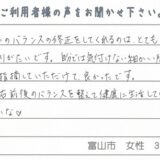 ご利用者様の声をお聞かせ下さい。
のバランスの修正をしてくれるのは、とても
りがたいです。自分では気付けない細かい所
指摘していただけて、良かったです。
右前後のバランスを整えて健康に生活して
いな♡
富山市 女性 3